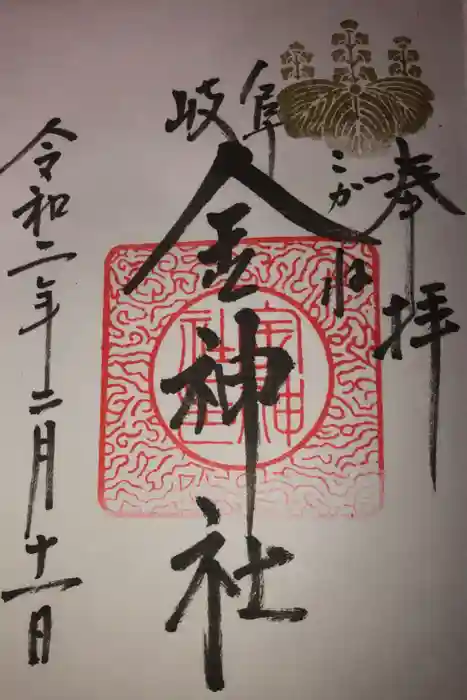 奉拝
こがね
岐阜
金神社
令和二年二月十一日